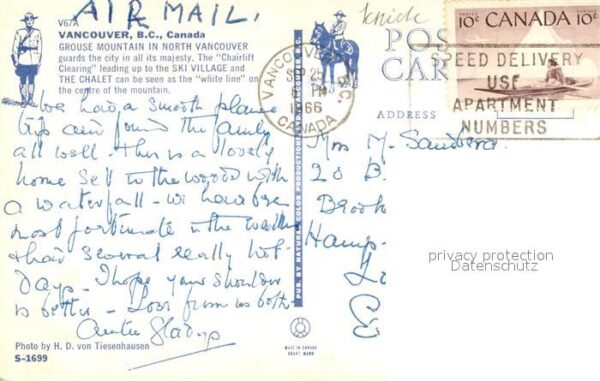 AIR MAIL.
V67A
VANCOUVER, B.C., Canada
GROUSE MOUNTAIN IN NORTH VANCOUVER
guards the city in all its majesty. The "Chairlift
Clearing" leading up to the SKI VILLAGE and
THE CHALET can be seen as the "white line" on
the centre of the mountain.
We had a smooth plane
trip and found the family
all well - this is a lovely
home set in the woods with
a waterfall - we have been
most fortunate in the weather
& had several really hot
Days - I hope your shoulder
is better - Love from us both
Auntie Gladys
Photo by H. D. von Tiesenhausen
S-1699
PUB. BY NATURAL COLOR PRODUCTIONS
MADE IN CANADA
VANCOUVER B.C.
SEP 25
6 PM
1966
CANADA
POS
CAR
ADDRESS
10¢ CANADA 10¢
SPEED DELIVERY
USE
APARTMENT
NUMBERS
Mrs M. Sanders
20 B
Brook
Hamp-
Lo
privacy protection
Datenschutz